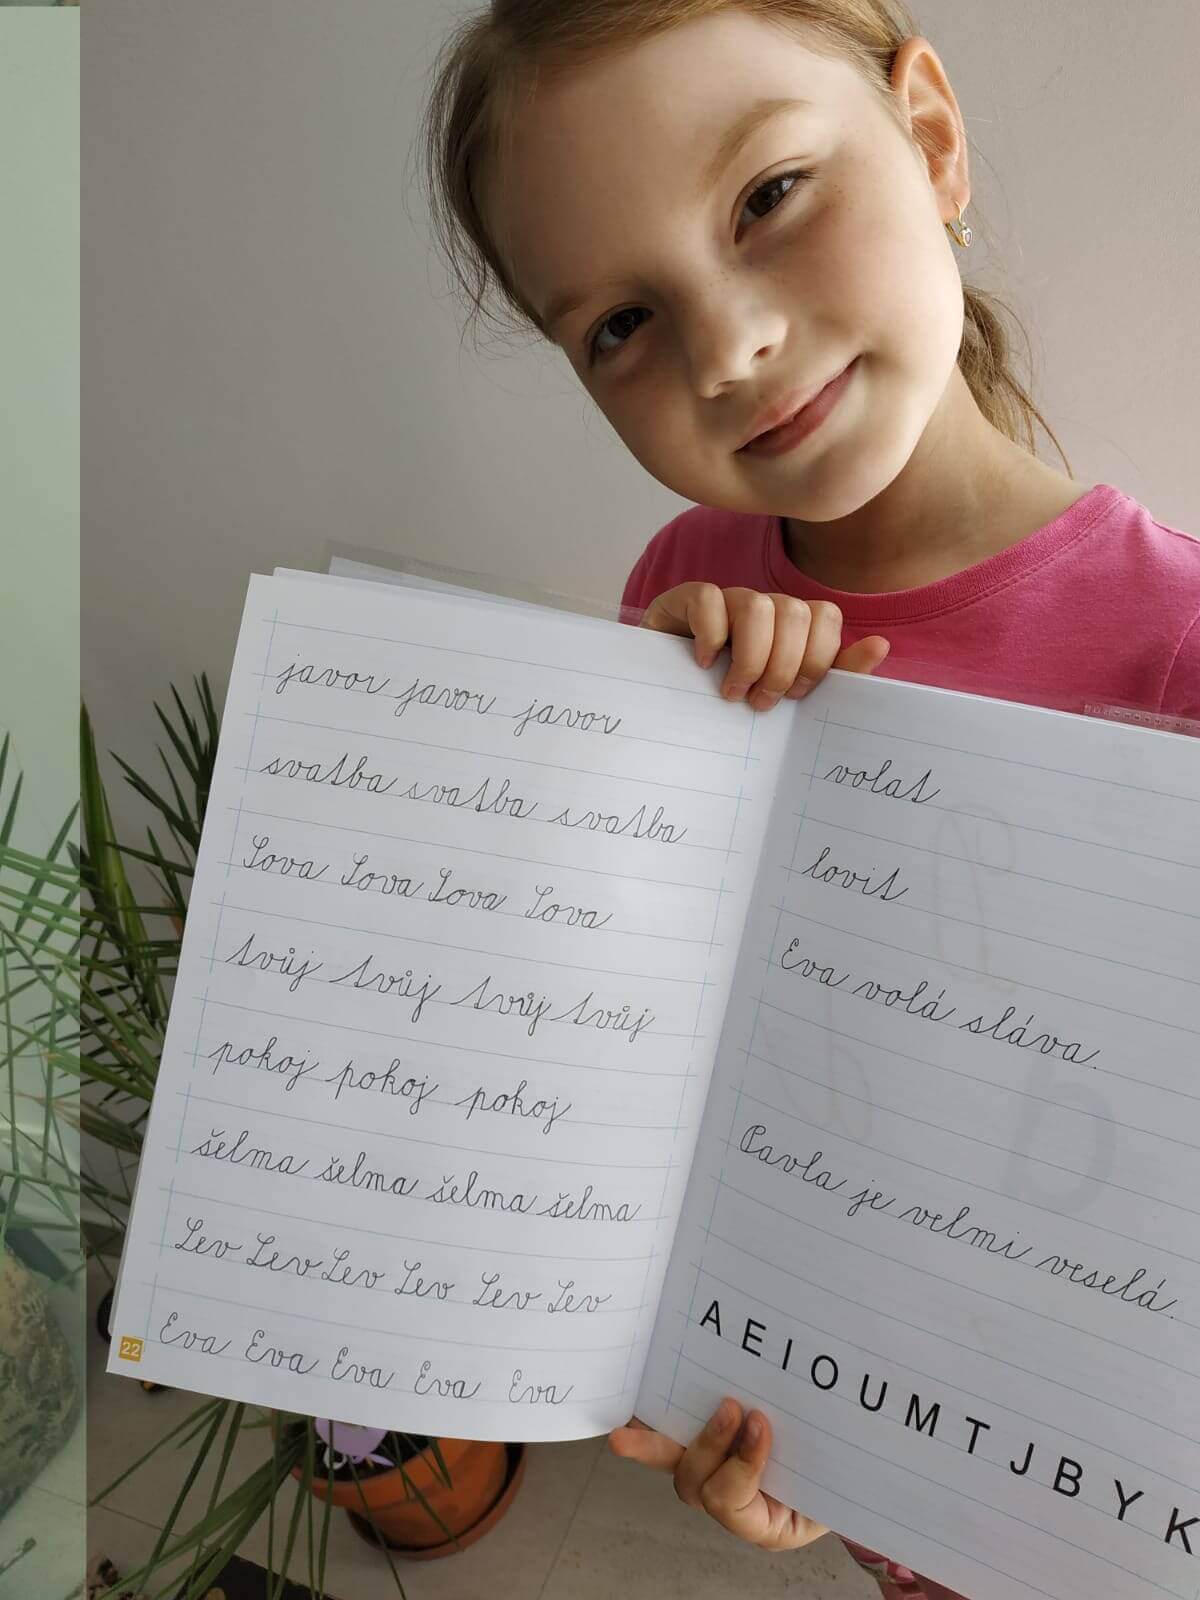 javor javor javor
svatba svatba svatba
Sova Sova Sova Sova
tvůj tvůj tvůj tvůj
pokoj pokoj pokoj
šelma šelma šelma šelma
Lev Lev Lev Lev Lev Lev
Eva Eva Eva Eva Eva
22
volat
lovit
Eva volá sláva.
Pavla je velmi veselá.
A E I O U M T J B Y K